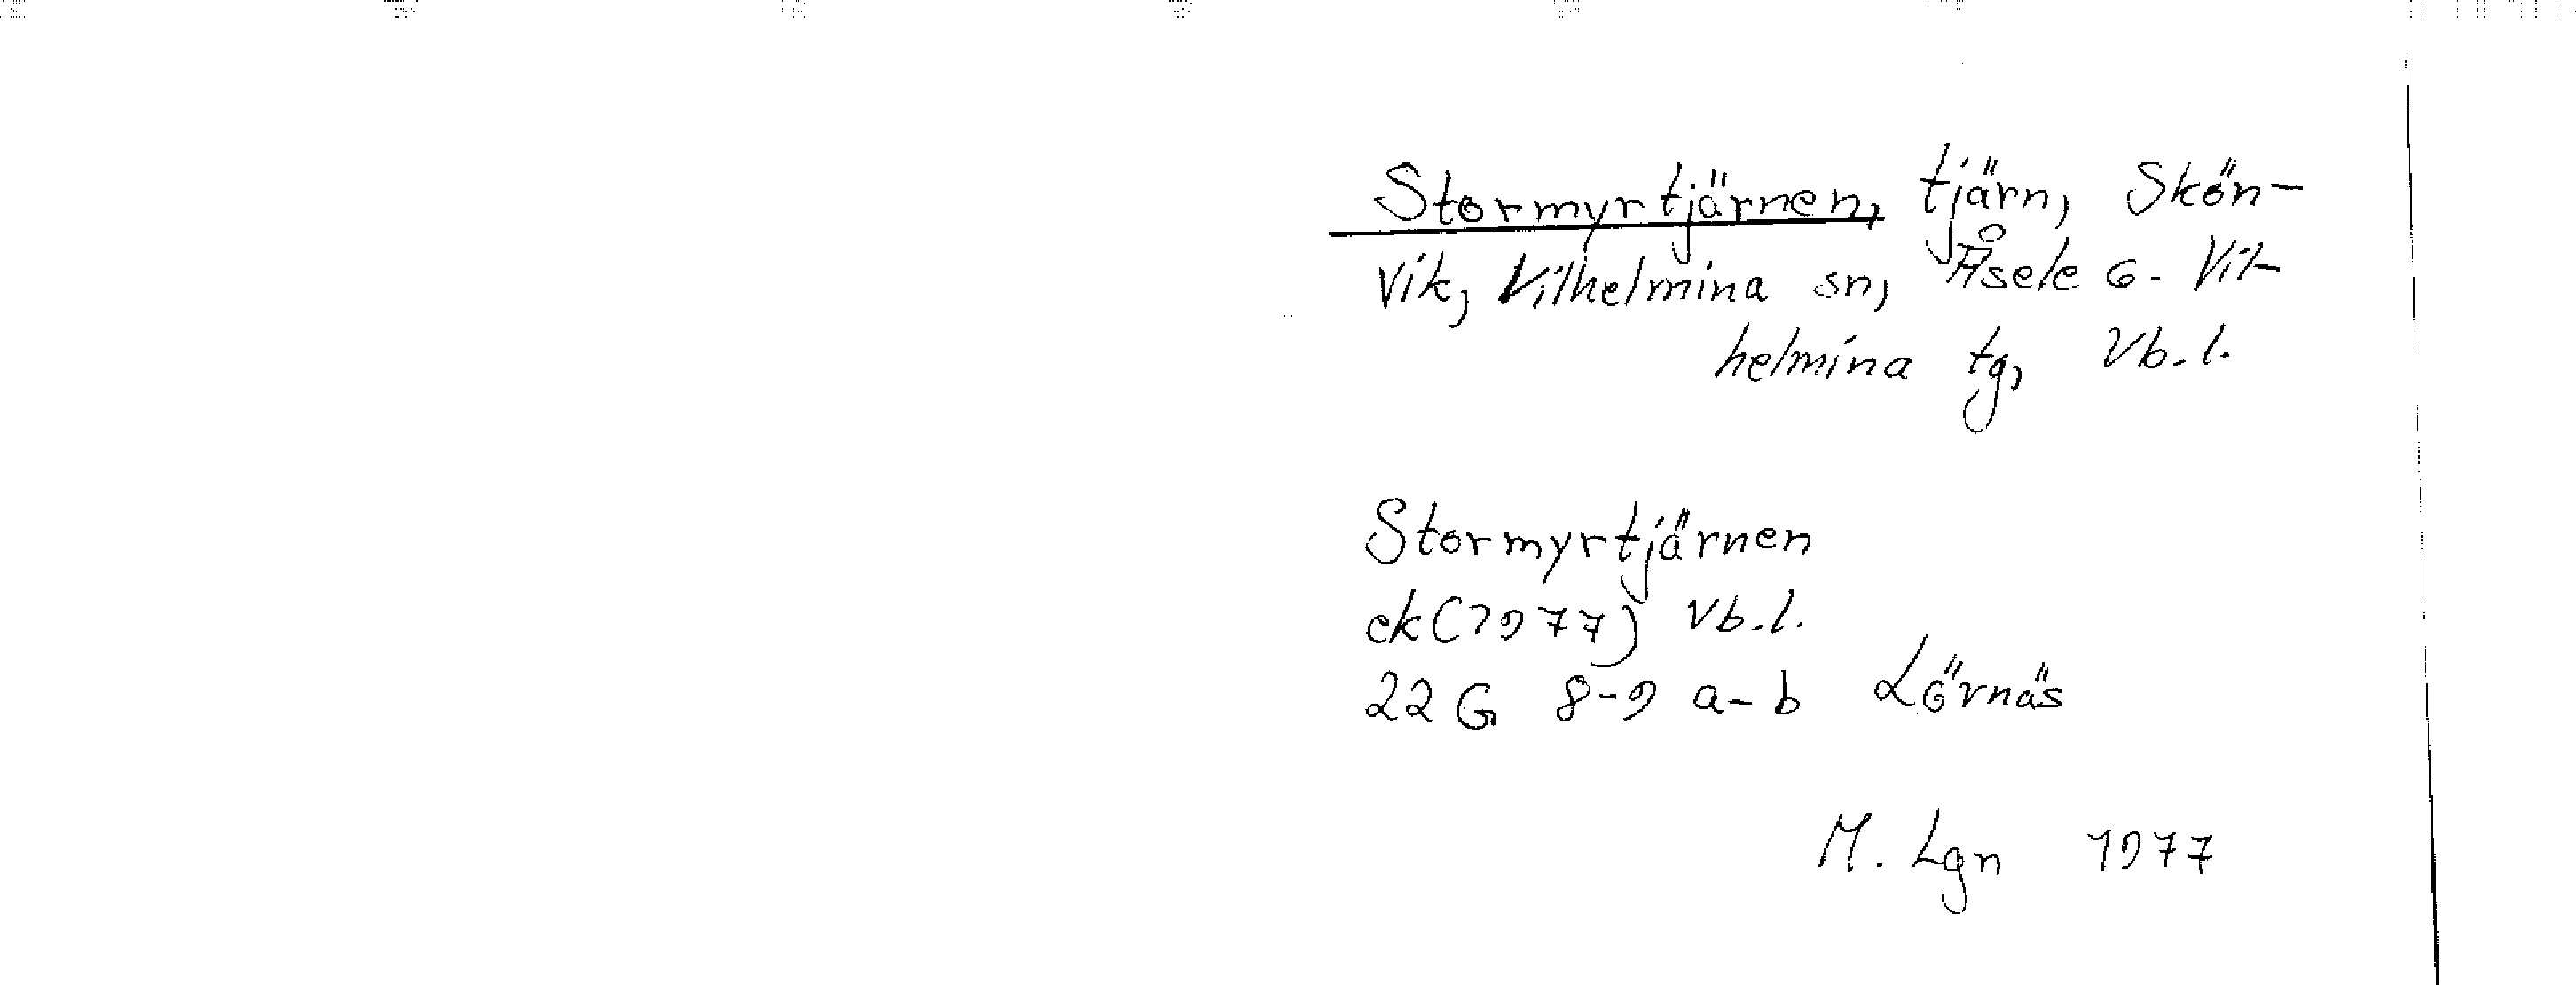 Stormyrtjärnen, tjärn, Skön-
vik, Vilhelmina sn, Åsele o. Vil-
helmina tg, Vb.l.
Stormyrtjärnen
ek (1977) Vb.l.
22 G 8-9 a-b Lövnäs
M. Lgn 1977